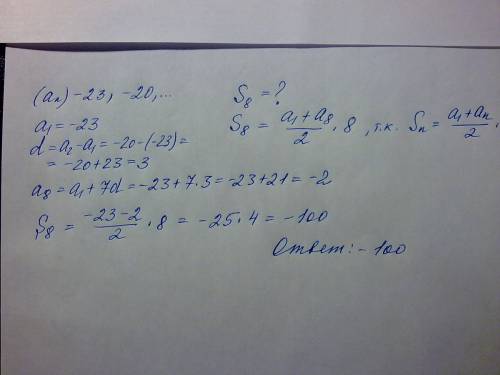 (aₙ) -23, -20,... S₈ = ?
a₁ = -23
S₈ = (a₁ + a₈)/2 · 8, т.к. Sₙ = (a₁ + aₙ)/2 ·
d = a₂ - a₁ = -20 - (-23) =
= -20 + 23 = 3
a₈ = a₁ + 7d = -23 + 7·3 = -23 + 21 = -2
S₈ = (-23 - 2)/2 · 8 = -25·4 = -100
Ответ: -100